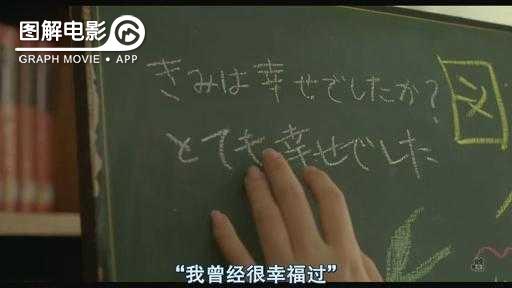 图解电影
GRAPH MOVIE • APP
きみは幸せでしたか?
とても幸せでした
“我曾经很幸福过”